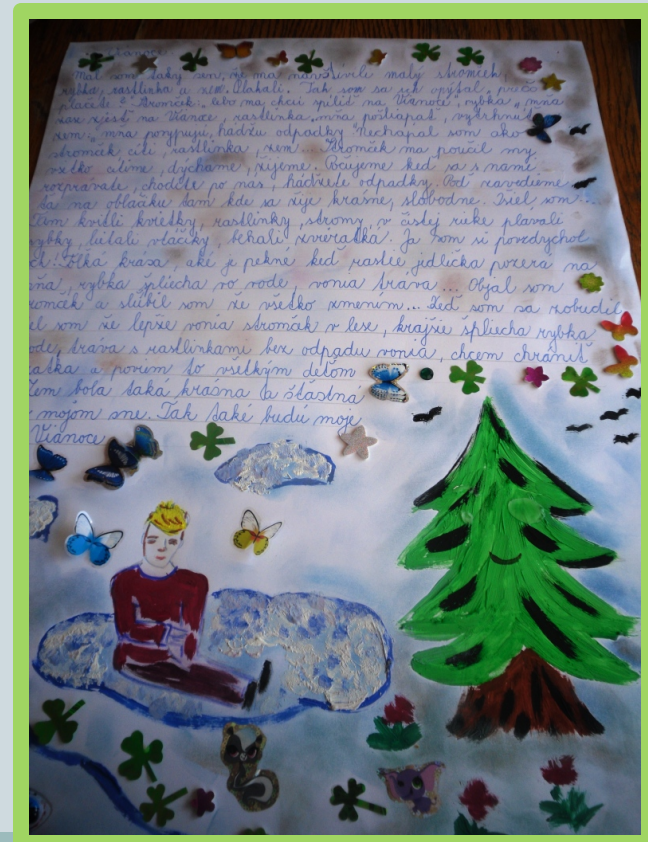 Vianoce
Mal som taký sen, že ma navštívili malý stromček,
rybka, rastlinka a zem. Plakali. Tak som sa ich opýtal, prečo
plačete? Stromček: „lebo ma chcú spíliť na Vianoce", rybka „mňa
zase zjesť na Vianoce, rastlinka „mňa pošliapať, vytrhnúť
zem: „mňa posypujú, hádžu odpadky. Nechápal som ako
stromček cíti, rastlinka, zem... Stromček ma poučil my
všetko cítime, dýchame, žijeme. Počujeme keď sa s nami
rozprávate, chodíte po nás, hádžete odpadky. Poď zavedieme
ťa na obláčiku tam kde sa žije krásne, slobodne. Išiel som...
Tam kvitli kvietky, rastlinky, stromy, v čistej rieke plávali
rybky, lietali vtáčiky, behali zvieratká. Ja som si povzdychol
Toľká krása, aké je pekné keď rastie jedlička pozerá na
mňa, rybka špliecha vo vode, vonia tráva... Objal som
stromček a sľúbil som že všetko zmením... Keď som sa zobudil
el som že lepšie vonia stromček v lese, krajšie špliecha rybka
vode, tráva s rastlinkami bez odpadu vonia, chcem chrániť
atká a poviem to všetkým deťom
Zem bola taká krásna a šťastná
v mojom sne. Tak také budú moje
Vianoce